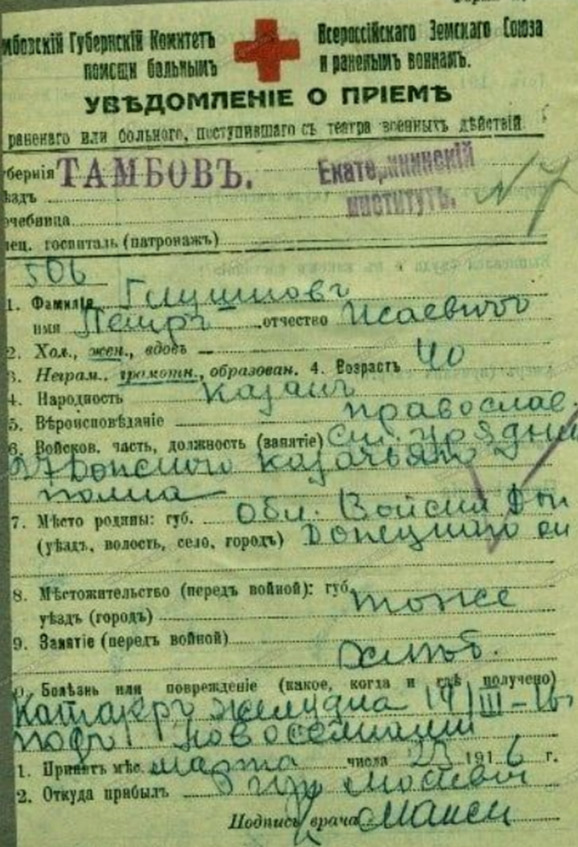 мбовскій Губернскій Комитетъ Всероссійскаго Земскаго Союза
помощи больнымъ и раненымъ воинамъ.
УВѢДОМЛЕНІЕ О ПРІЕМѢ
раненаго или больного, поступившаго съ театра военныхъ дѣйствій.
убернія ТАМБОВЪ. Екатерининскій
ѣздъ институтъ.
ечебница
пец. госпиталь (патронажъ)
506
1. Фамилія Глушковъ
имя Петръ отчество Исаевичъ
2. Хол., жен., вдовъ
3. Неграм., грамотн., образован. 4. Возрастъ 40
4. Народность казакъ
5. Вѣроисповѣданіе православ.
6. Войсков. часть, должность (занятіе) ст. урядни
27 Донского казачьяго
полка
7. Мѣсто родины: губ. Обл. Войска Дон
(уѣздъ, волость, село, городъ) Донецкаго
8. Мѣстожительство (передъ войной): губ. тоже
уѣздъ (городъ)
9. Занятіе (передъ войной)
хлѣб.
0. Болѣзнь или поврежденіе (какое, когда и гдѣ получено)
Катарръ желудка III-16
подъ
1. Принятъ мѣс. марта числа 23 1916 г.
2. Откуда прибылъ
Подпись врача